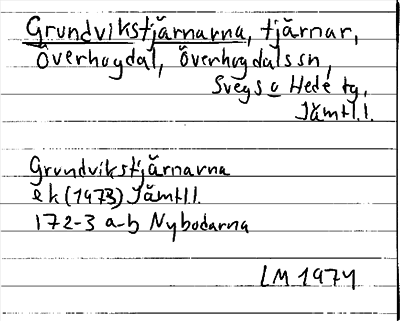 Grundvikstjärnarna, tjärnar,
Överhogdal, Överhogdals sn,
Svegs o Hede tg,
Jämtl.l.
Grundvikstjärnarna
ek (1973) Jämtl.l.
172-3 a-b Nybodarna
LM 1974